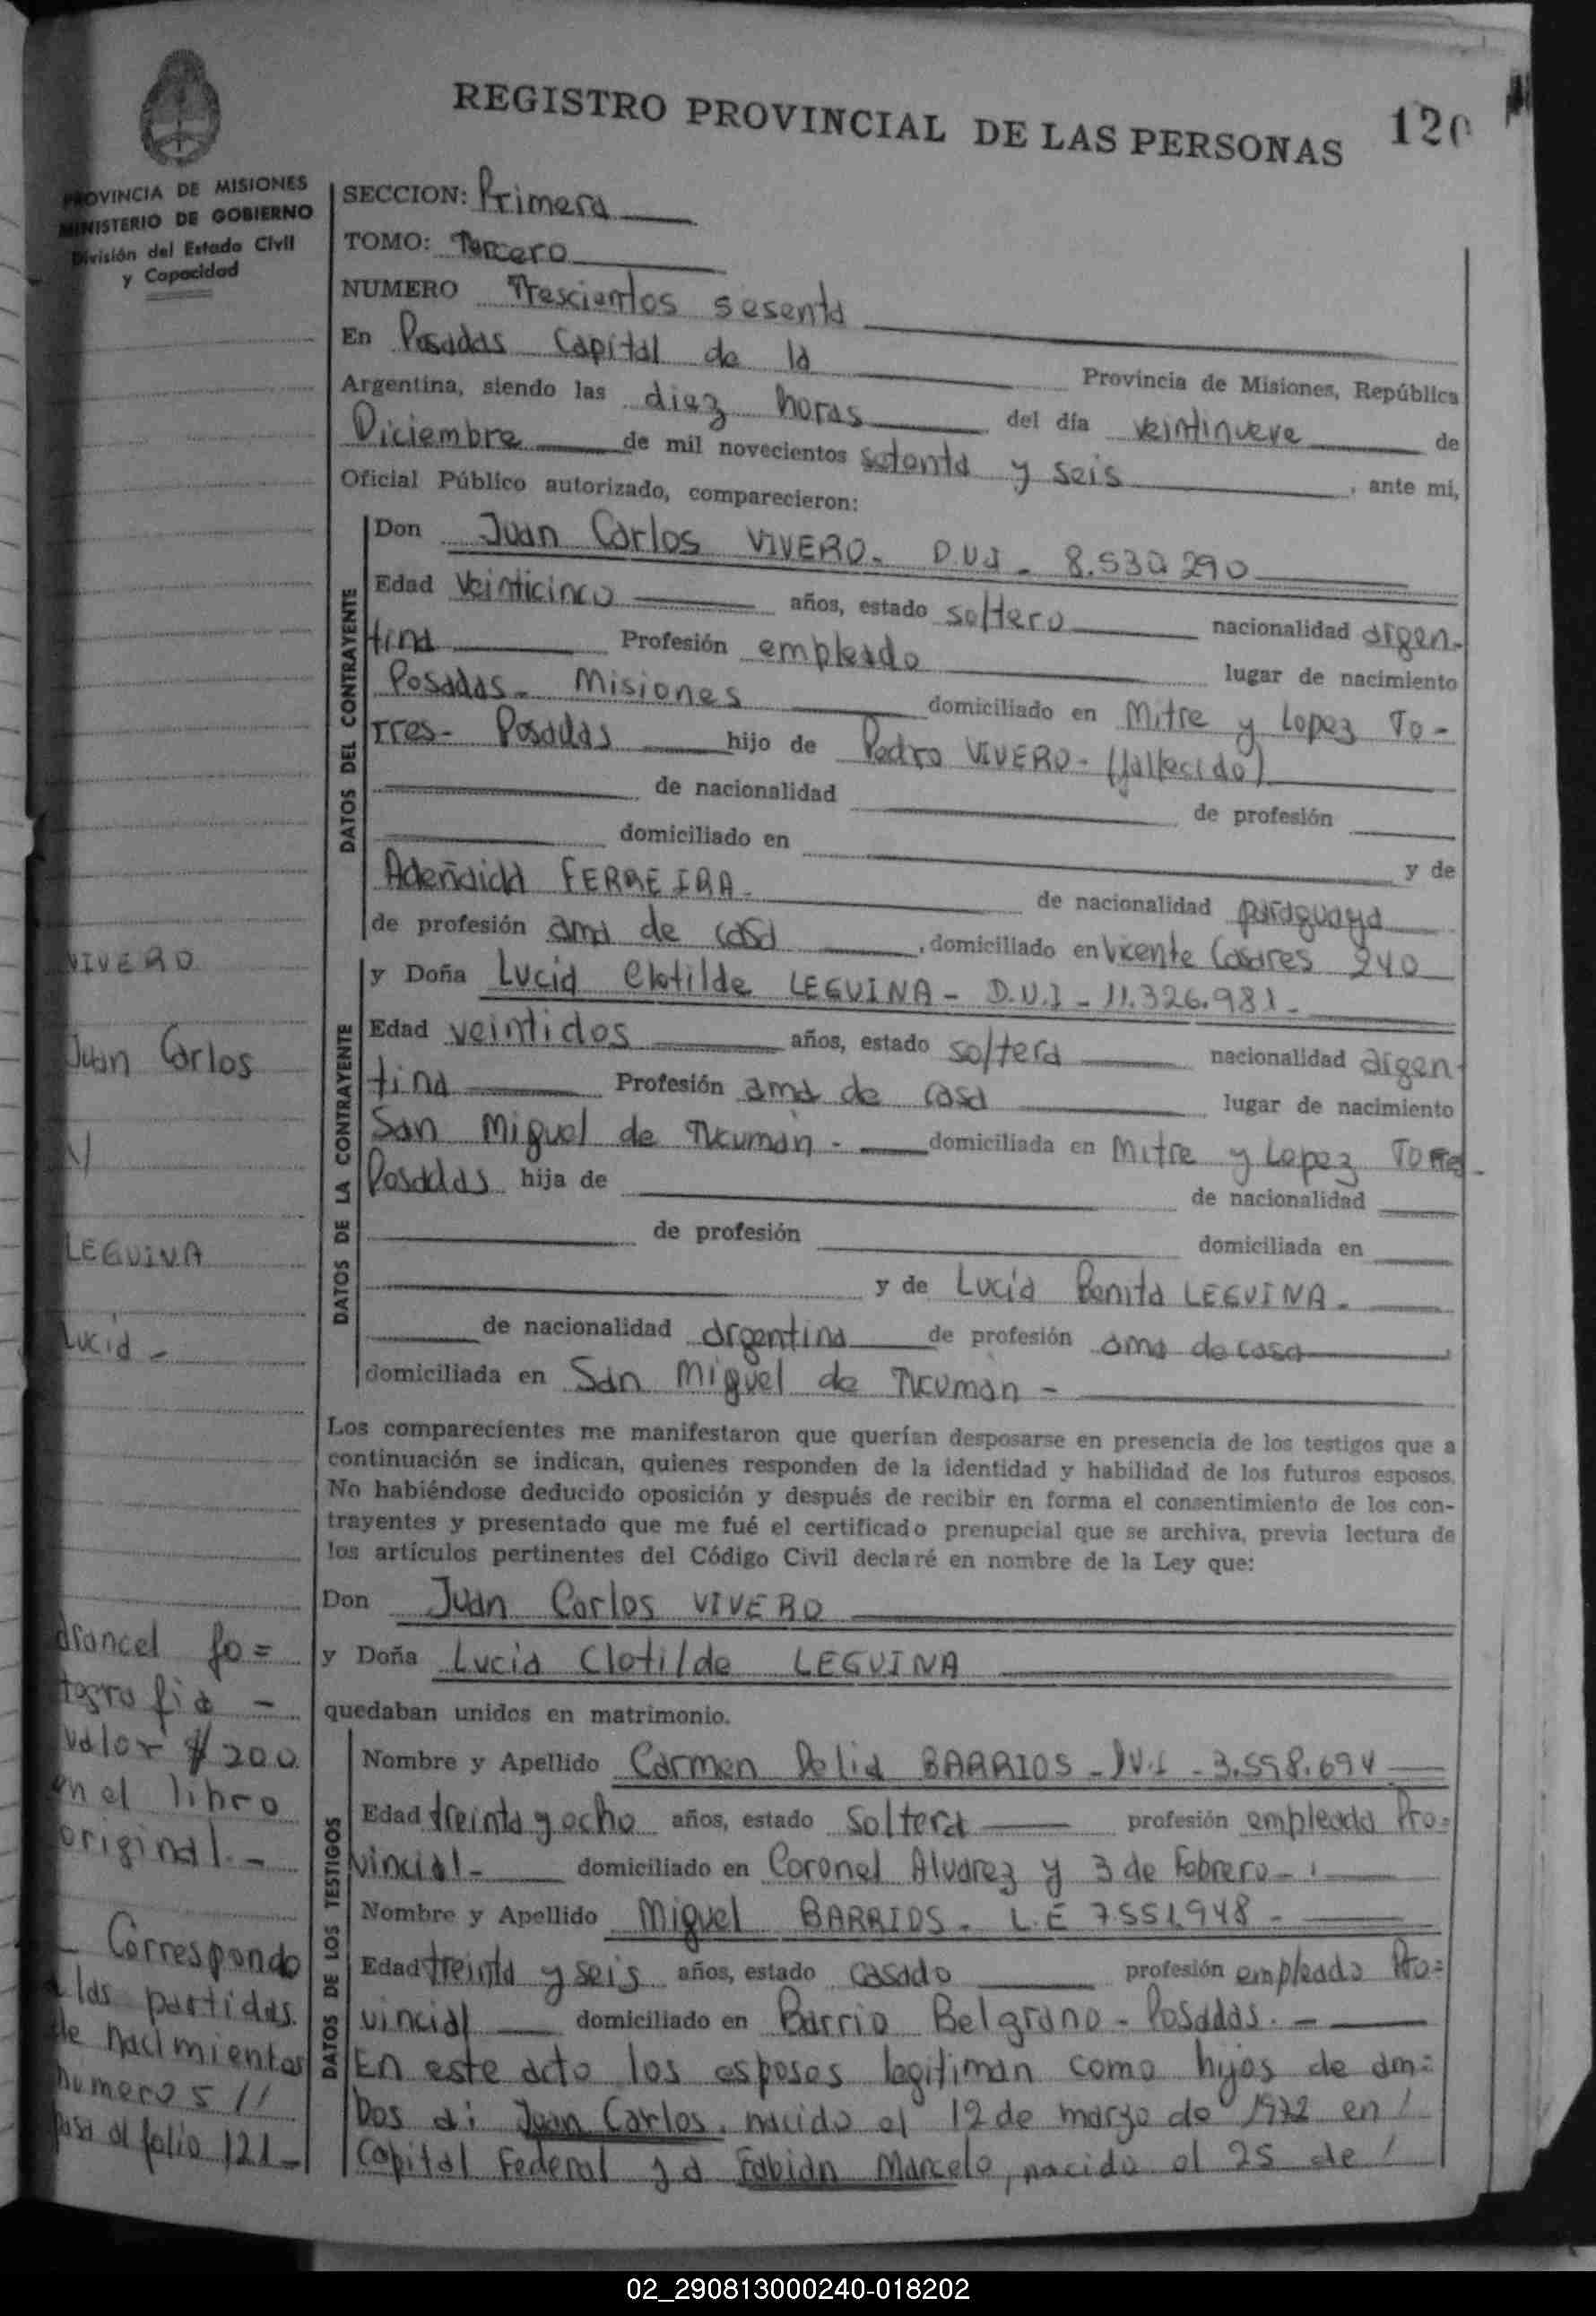 REGISTRO PROVINCIAL DE LAS PERSONAS 120
PROVINCIA DE MISIONES
MINISTERIO DE GOBIERNO
División del Estado Civil
y Capacidad
SECCION: Primera
TOMO: Tercero
NUMERO Trescientos sesenta
En Posadas Capital de la Provincia de Misiones, República
Argentina, siendo las diez horas del día veintinueve de
Diciembre de mil novecientos setenta y seis, ante mi,
Oficial Público autorizado, comparecieron:
DATOS DEL CONTRAYENTE
Don Juan Carlos VIVERO- D.U.I - 8.530.290
Edad veinticinco años, estado soltero nacionalidad argen-
tina Profesión empleado lugar de nacimiento
Posadas- Misiones domiciliado en Mitre y Lopez To-
rres- Posadas hijo de Pedro VIVERO- (fallecido)
de nacionalidad de profesión
domiciliado en y de
FERREIRA- de nacionalidad paraguaya
de profesión ama de casa, domiciliado en Vicente Casares 240
DATOS DE LA CONTRAYENTE
y Doña Lucia Clotilde LEGUINA- D.U.I - 11.326.981-
Edad veintidos años, estado soltera nacionalidad argen-
tina Profesión ama de casa lugar de nacimiento
San Miguel de Tucuman- domiciliada en Mitre y Lopez Torres-
Posadas hija de de nacionalidad
de profesión domiciliada en
y de Lucia Benita LEGUINA-
de nacionalidad argentina de profesión ama de casa
domiciliada en San Miguel de Tucuman-
Los comparecientes me manifestaron que querían desposarse en presencia de los testigos que a
continuación se indican, quienes responden de la identidad y habilidad de los futuros esposos.
No habiéndose deducido oposición y después de recibir en forma el consentimiento de los con-
trayentes y presentado que me fué el certificado prenupcial que se archiva, previa lectura de
los artículos pertinentes del Código Civil declaré en nombre de la Ley que:
Don Juan Carlos VIVERO
y Doña Lucia Clotilde LEGUINA
quedaban unidos en matrimonio.
DATOS DE LOS TESTIGOS
Nombre y Apellido Carmen Delia BARRIOS - D.U.I - 3.598.694
Edad treinta y ocho años, estado soltera profesión empleada Pro=
vincial- domiciliado en Coronel Alvarez y 3 de Febrero-
Nombre y Apellido Miguel BARRIOS- L.E 7.551.948-
Edad treinta y seis años, estado casado profesión empleado Pro=
vincial domiciliado en Barrio Belgrano- Posadas.-
En este acto los esposos legitiman como hijos de am=
bos a: Juan Carlos, nacido el 12 de marzo de 1972 en
Capital Federal y a Fabian Marcelo, nacido el 25 de
VIVERO
Juan Carlos
y
LEGUINA
Lucia-
arancel fo=
tografia-
valor $ 200
en el libro
original.-
- Corresponde
a las partidas
de nacimientos
numeros //
pasa al folio 121-
02_290813000240-018202